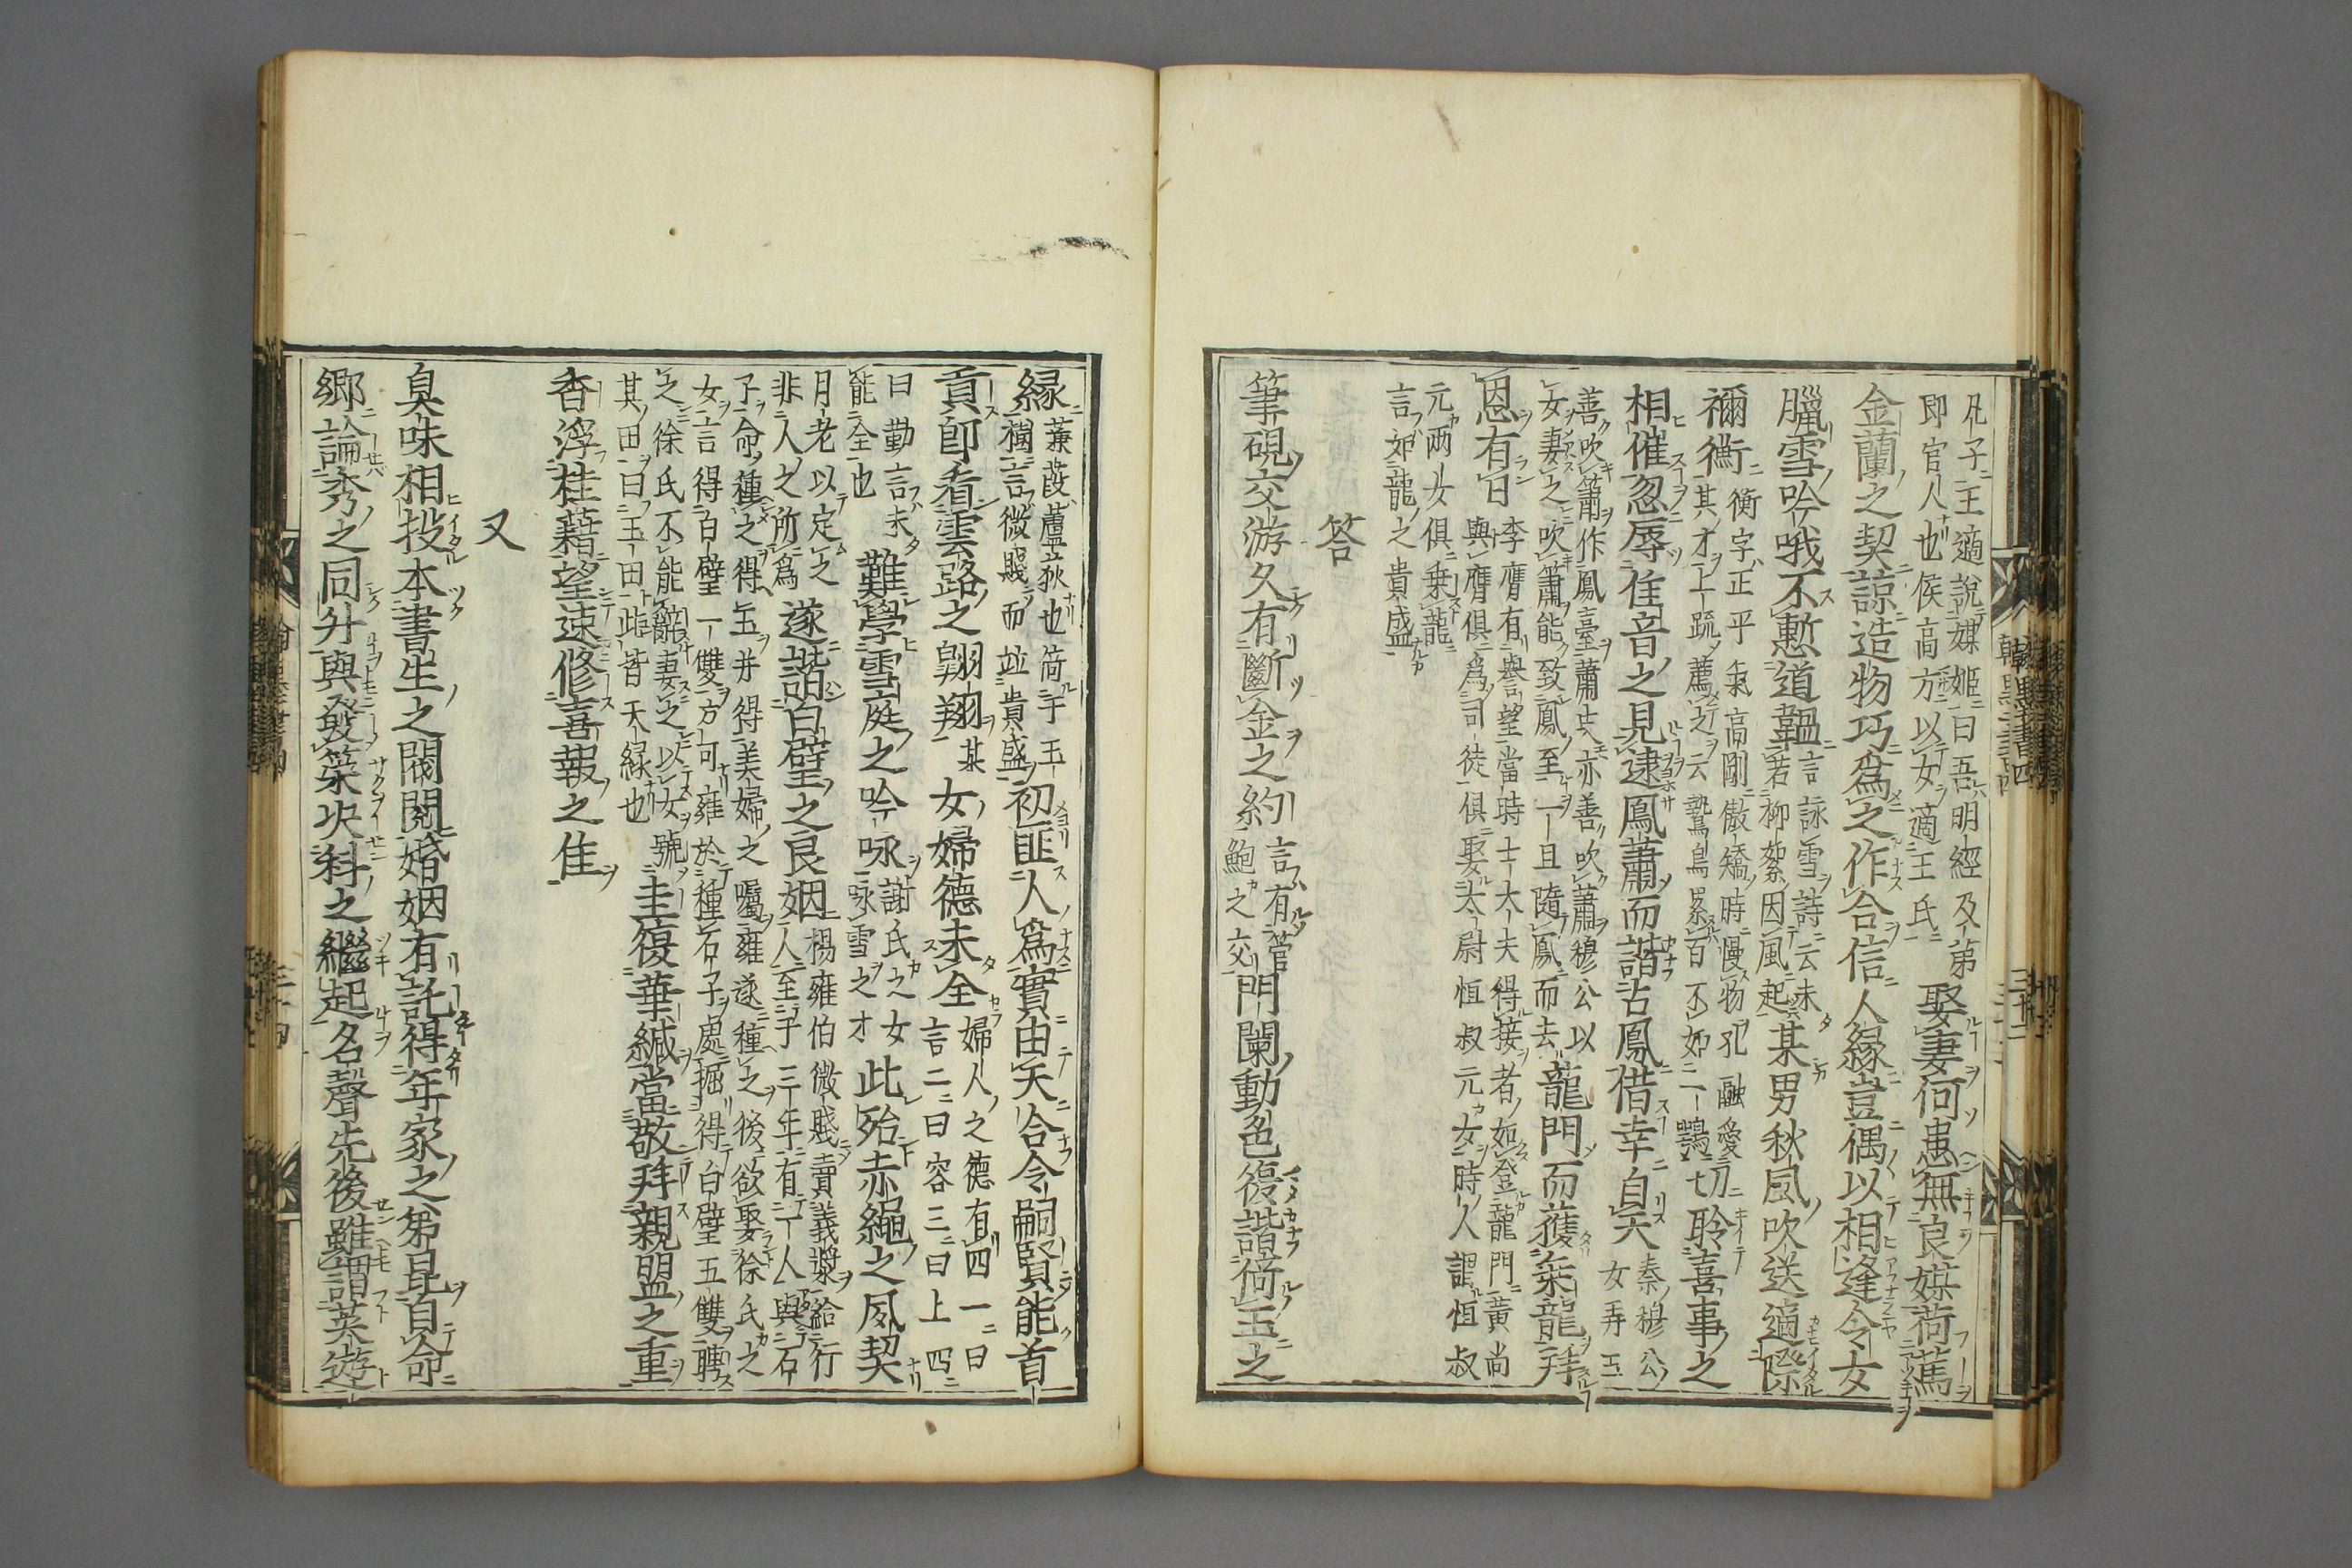 凡子王適説媒姬曰吾明經及第
即官人也侯高方以女適王氏
娶妻何患無良媒荷蔦
金蘭之契諒造物巧爲之作合信人緣豈偶以相逢令女
臘雪吟哦不慙道韞
言詠雪詩云未
若柳絮因風起
某男秋風吹送適際
禰衡
衡字正平氣高剛傲矯時慢物孔融愛
其才上疏薦之云鷙鳥累百不如一鶚
切聆喜事之
相催忽辱佳音之見逮鳳蕭而諧占鳳借幸自天
秦穆公
女弄玉
善吹簫作鳳臺蕭史亦善吹蕭穆公以
女妻之吹簫能致鳳至一旦隨鳳而去
龍門而獲乘龍拜
恩有日
李膺有譽望當時士大夫得接者如登龍門黃尚
與膺俱爲司徒俱娶太尉恒叔元女時人謂恒叔
元両女俱乗龍
言如龍之貴盛
答
筆硯交游久有斷金之約
言有管
鮑之交
門闌動色復諧倚玉之
緣
蒹葭蘆荻也倚于玉
樹言微賤而並貴盛
初匪人爲實由天合令嗣賢能首
貢卽看雲路之翺翔某女婦德未全
婦人之德有四一曰
言二曰容三曰上四
曰勤言未
能全也
難學雪庭之吟咏
謝氏之女
咏雪之才
此殆赤繩之夙契
月老以定之
非人之所爲
遂諧白璧之良姻
楊雍伯微賤賣義漿給行
人至于三年有一人與石
子命種之得玉并得美婦之囑雍遂種之後欲娶徐氏之
女言得白璧一雙方可雍於種石子處掘得白璧五雙聘
之徐氏不能辭妻之以女號
其田曰玉田此皆天緣也
圭復華緘當敬拜親盟之重
香浮桂藉望速修喜報之佳
又
臭味相投本書生之閥閱婚姻有託得年家之弟昆自命
鄉論秀之同升與發策決科之繼起名聲先後雖謂英遊